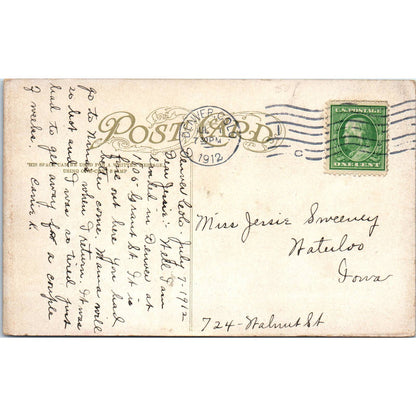 POST CARD
DENVER, COLO.
1912
U.S. POSTAGE
ONE CENT
Denver Colo. July 7-1912
Dear Jessie:- Well I am
landed in Denver at
1105 Grant St. It is
fine out here you had
better come. Mama will
go to when I return. It was
so hot and I was so tired just
had to get away for a couple
of weeks.
Miss Jessie Sweeney
Waterloo
Iowa
724-Walnut St